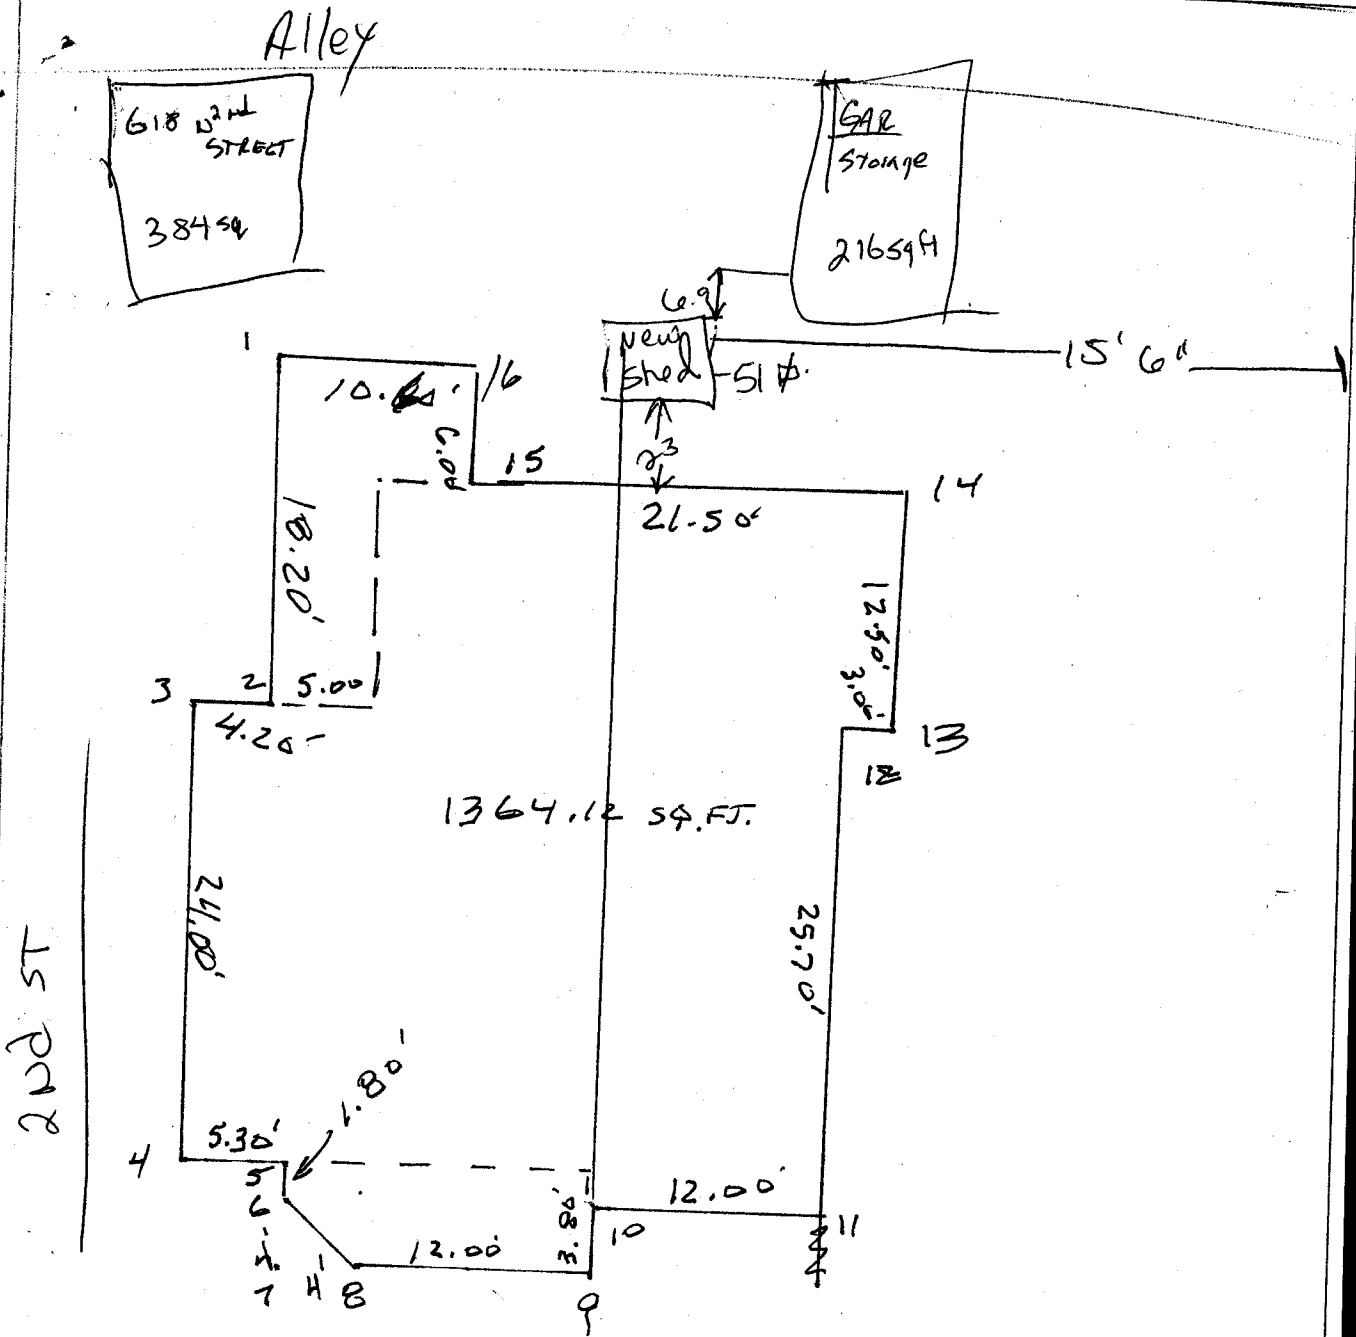 Alley
618 N 2nd
STREET
384 sq
GAR
Storage
216 sq ft
6.9
New
shed
51
15' 6"
1
16
6.00
15
2³
14
21.50'
18.20'
12.50'
3
2
5.00
3.00'
4.20'
13
12
1364.12 SQ.FT.
24.00'
25.70'
2ND ST
1.80'
4
5.30'
5
6
12.00'
3.80'
10
11
12.00'
7
4'
8
9